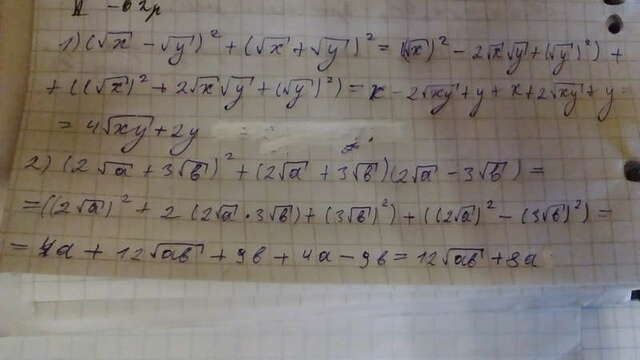 1) (√x - √y)² + (√x + √y)² = (√x)² - 2√x√y + (√y)²) +
+ ((√x)² + 2√x√y + (√y)²) = x - 2√xy + y + x + 2√xy + y =
= 4√xy + 2y
2) (2√a + 3√b)² + (2√a + 3√b)(2√a - 3√b) =
= ((2√a)² + 2(2√a · 3√b) + (3√b)²) + ((2√a)² - (3√b)²) =
= 4a + 12√ab + 9b + 4a - 9b = 12√ab + 8a